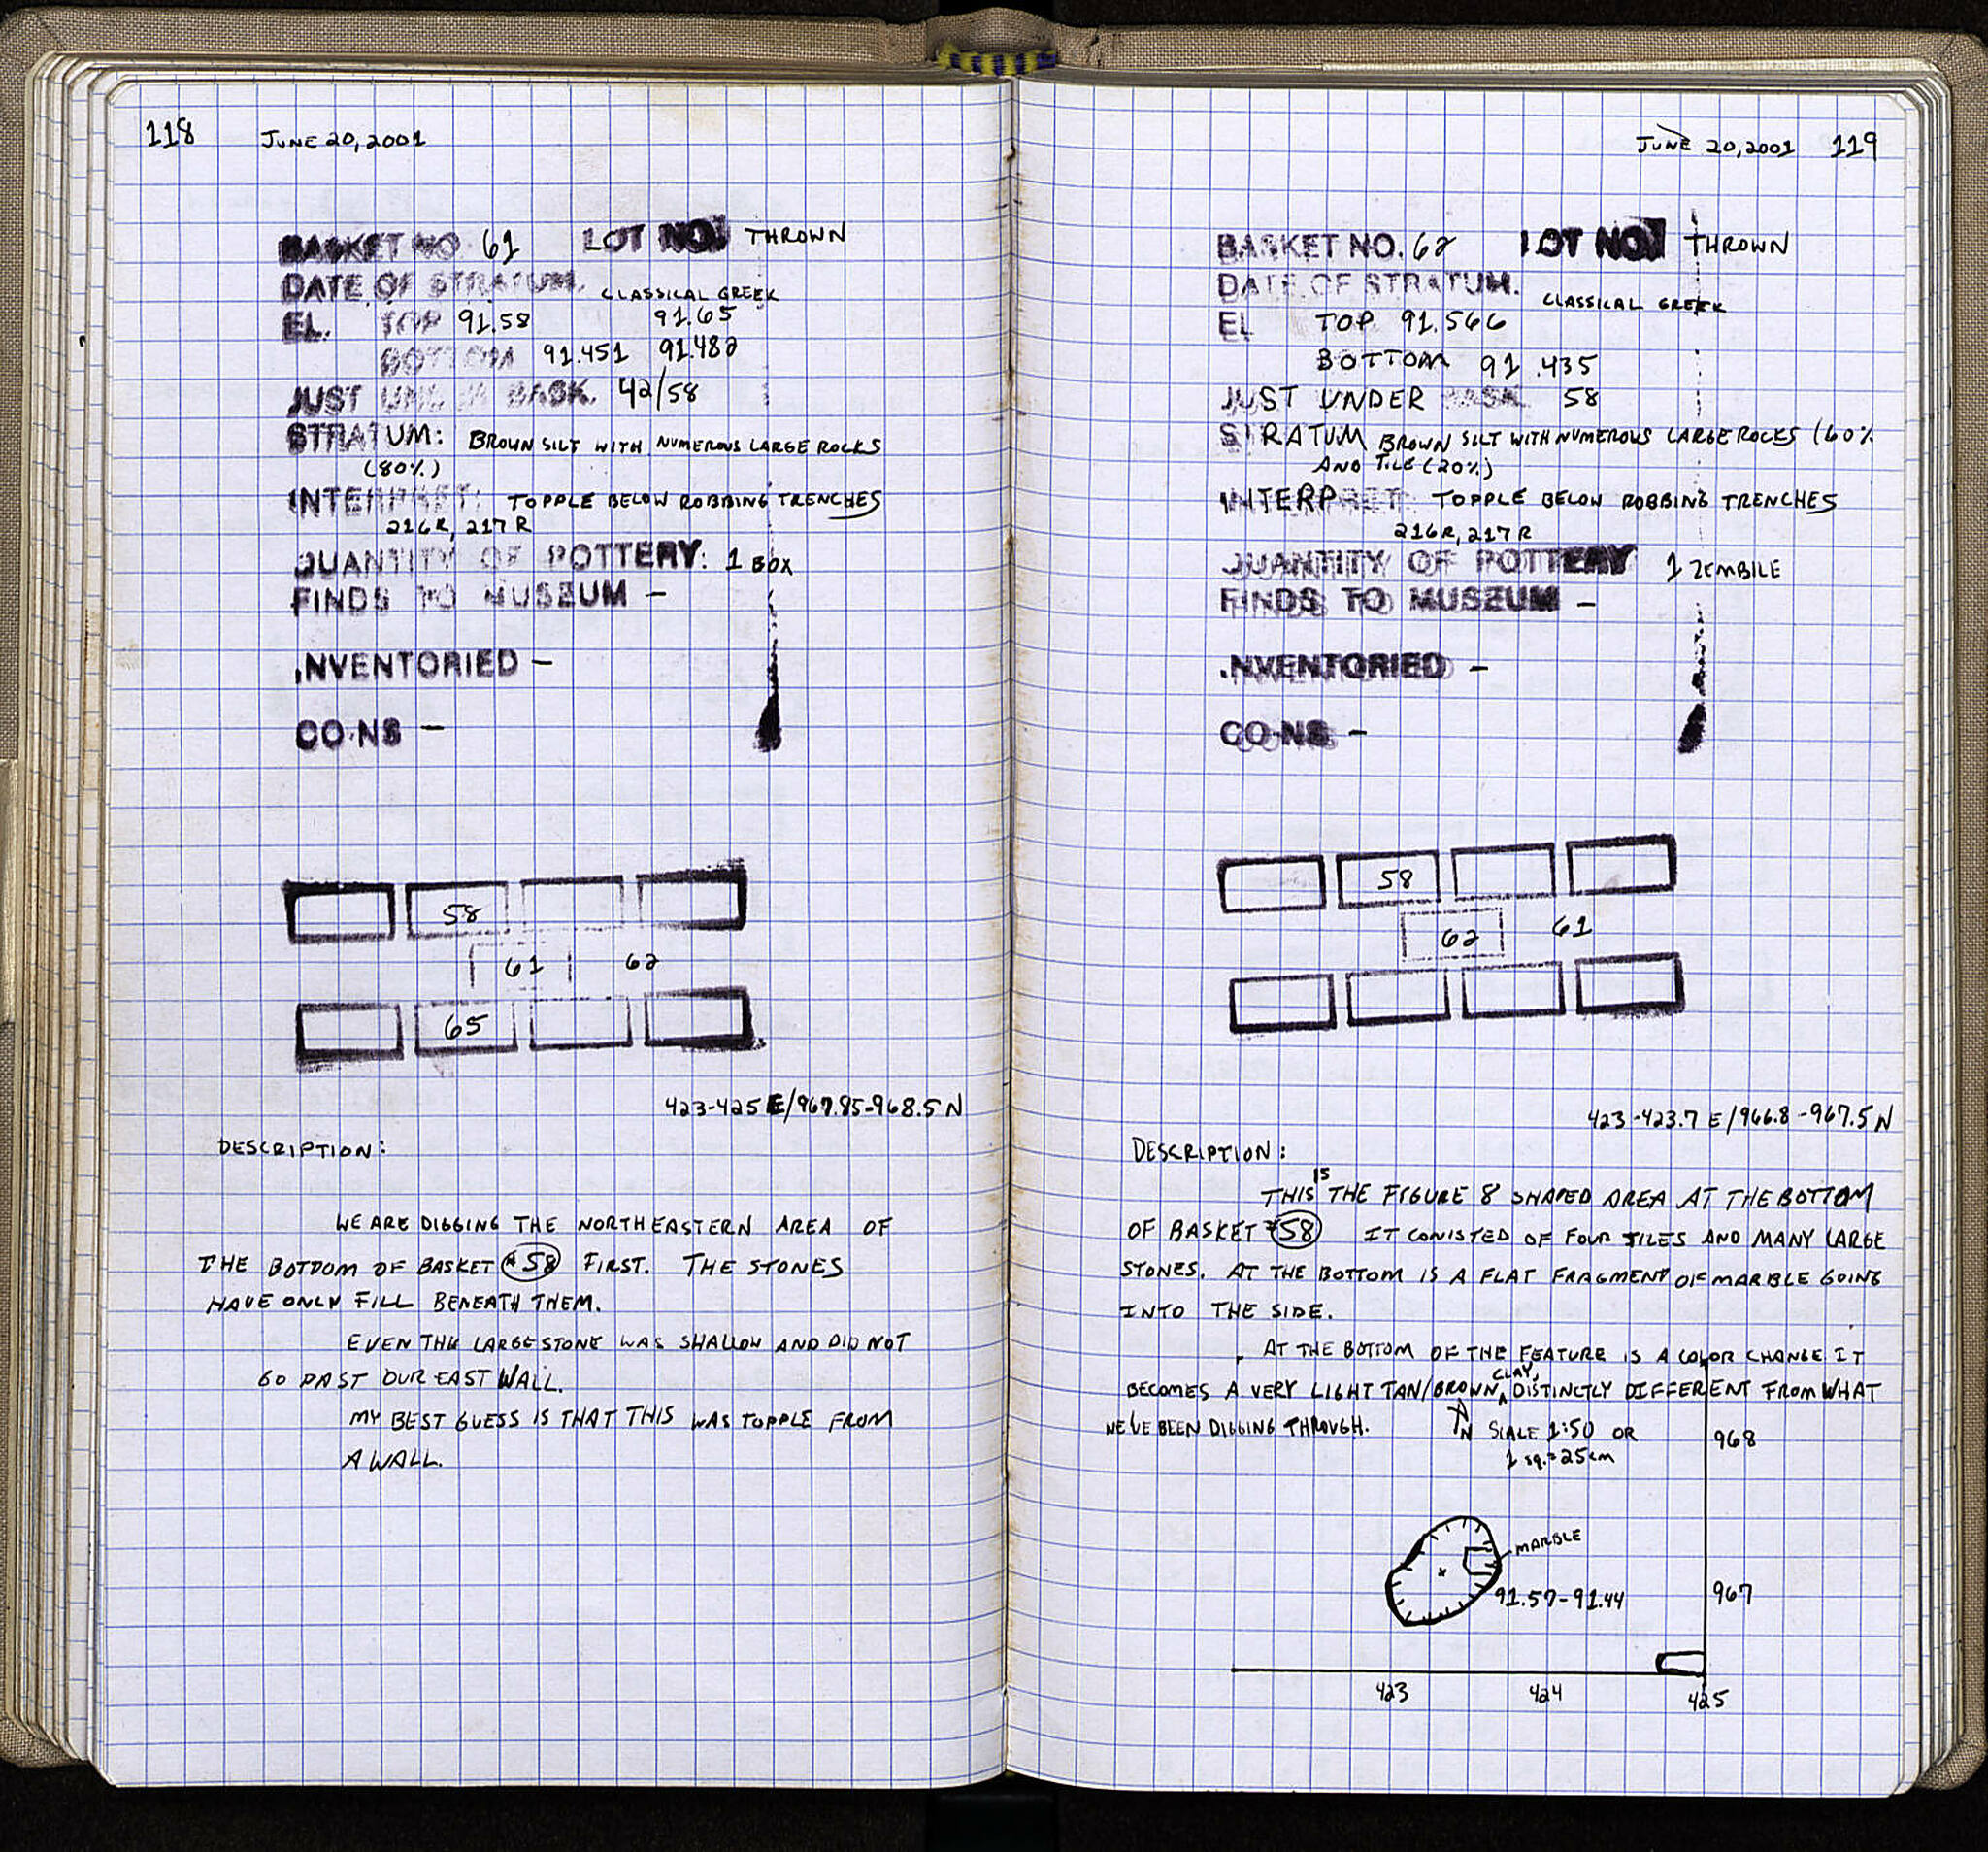 118 JUNE 20, 2001
BASKET NO. 61 LOT NO. THROWN
DATE OF STRATUM. CLASSICAL GREEK
EL. TOP 91.58 91.65
BOTTOM 91.451 91.482
JUST UNDER BASK. 42/58
STRATUM: BROWN SILT WITH NUMEROUS LARGE ROCKS
(80%)
INTERPRET: TOPPLE BELOW ROBBING TRENCHES
216R, 217R
QUANTITY OF POTTERY: 1 BOX
FINDS TO MUSEUM -
INVENTORIED -
COINS -
58
61 62
65
423-425 E/967.85-968.5 N
DESCRIPTION:
WE ARE DIGGING THE NORTHEASTERN AREA OF
THE BOTTOM OF BASKET #58 FIRST. THE STONES
HAVE ONLY FILL BENEATH THEM.
EVEN THE LARGE STONE WAS SHALLOW AND DID NOT
GO PAST OUR EAST WALL.
MY BEST GUESS IS THAT THIS WAS TOPPLE FROM
A WALL.
JUNE 20, 2001 119
BASKET NO. 62 LOT NO. THROWN
DATE OF STRATUM. CLASSICAL GREEK
EL TOP 91.566
BOTTOM 91.435
JUST UNDER BASK 58
STRATUM BROWN SILT WITH NUMEROUS LARGE ROCKS (60%
AND TILE (20%)
INTERPRET: TOPPLE BELOW ROBBING TRENCHES
216R, 217R
QUANTITY OF POTTERY 1 ZEMBILE
FINDS TO MUSEUM -
INVENTORIED -
COINS -
58
62 61
423-423.7 E/966.8-967.5 N
DESCRIPTION:
THIS IS THE FIGURE 8 SHAPED AREA AT THE BOTTOM
OF BASKET #58 IT CONISTED OF FOUR TILES AND MANY LARGE
STONES. AT THE BOTTOM IS A FLAT FRAGMENT OF MARBLE GOING
INTO THE SIDE.
AT THE BOTTOM OF THE FEATURE IS A COLOR CHANGE IT
BECOMES A VERY LIGHT TAN/BROWN CLAY, DISTINCTLY DIFFERENT FROM WHAT
WE'VE BEEN DIGGING THROUGH.
N SCALE 1:50 OR 968
1 sq. = 25cm
MARBLE
91.57-91.44 967
423 424 425